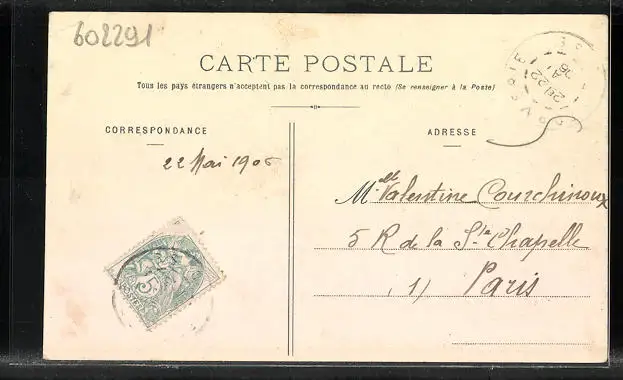 602291
CARTE POSTALE
Tous les pays étrangers n'acceptent pas la correspondance au recto (Se renseigner à la Poste)
CORRESPONDANCE
ADRESSE
22 Mai 1906
Mlle Valentine Courchinoux
5 R de la Ste Chapelle
Paris
5
POSTES